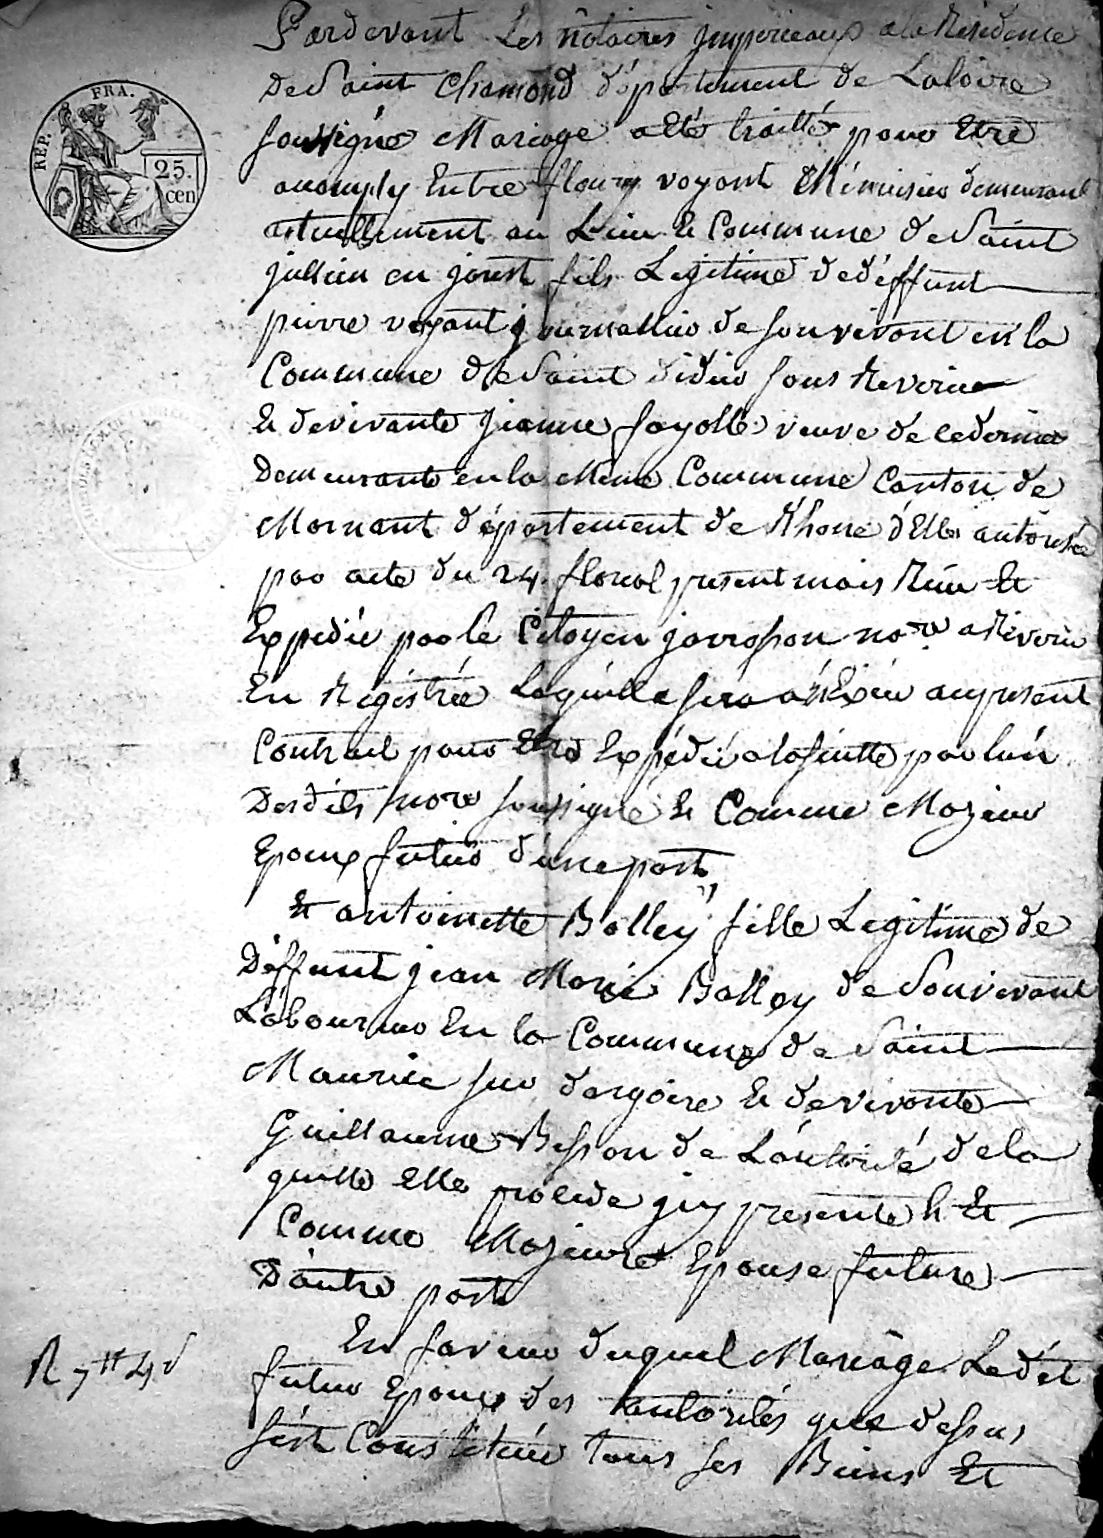 Pardevant Les notaires jmperieaux a la Residence
De Saint Chamond département de Laloire
soussigné Mariage a été traitté pour Etre
accomply Entre fleury voyant Menuisier demeurant
actuellement au Lieu & Commune de Saint
jullien en jarest fils Legitime de déffunt
pierre voyant journallier de son vivant en la
Commune de Saint didier sous Riverie
& de vivante jeanne fayolle veuve de ce dernier
Demeurante en la Meme Commune Canton de
Mornant département de Rhone d'Elle autorisée
par acte du 24 floreal present mois Reçu Et
Expédié par le Citoyen no.re a Riverie
En Registrée Laquelle sera anéxée au present
Contrait pour Etre Expédiée a la suitte par lun
Desdits nores soussigné & Comme Majeur
Epoux futur d'une part
Et antoinette Balley fille Legitime de
Déffunt jean Marie Balley de Son vivant
Laboureur En la Commune de Saint
Maurice sur dargoire & de vivante
Guillaume Besson de Lautorité de la
quelle Elle procede jcy presente Et
Comme Majeure Epouse future
D'autre part
En faveur duquel Mariage Ledit
futur Epoux des autorités que dessus
s'est Constitué tous ses Biens Et
REP. FRA.
25.
cen
R 7# 4d